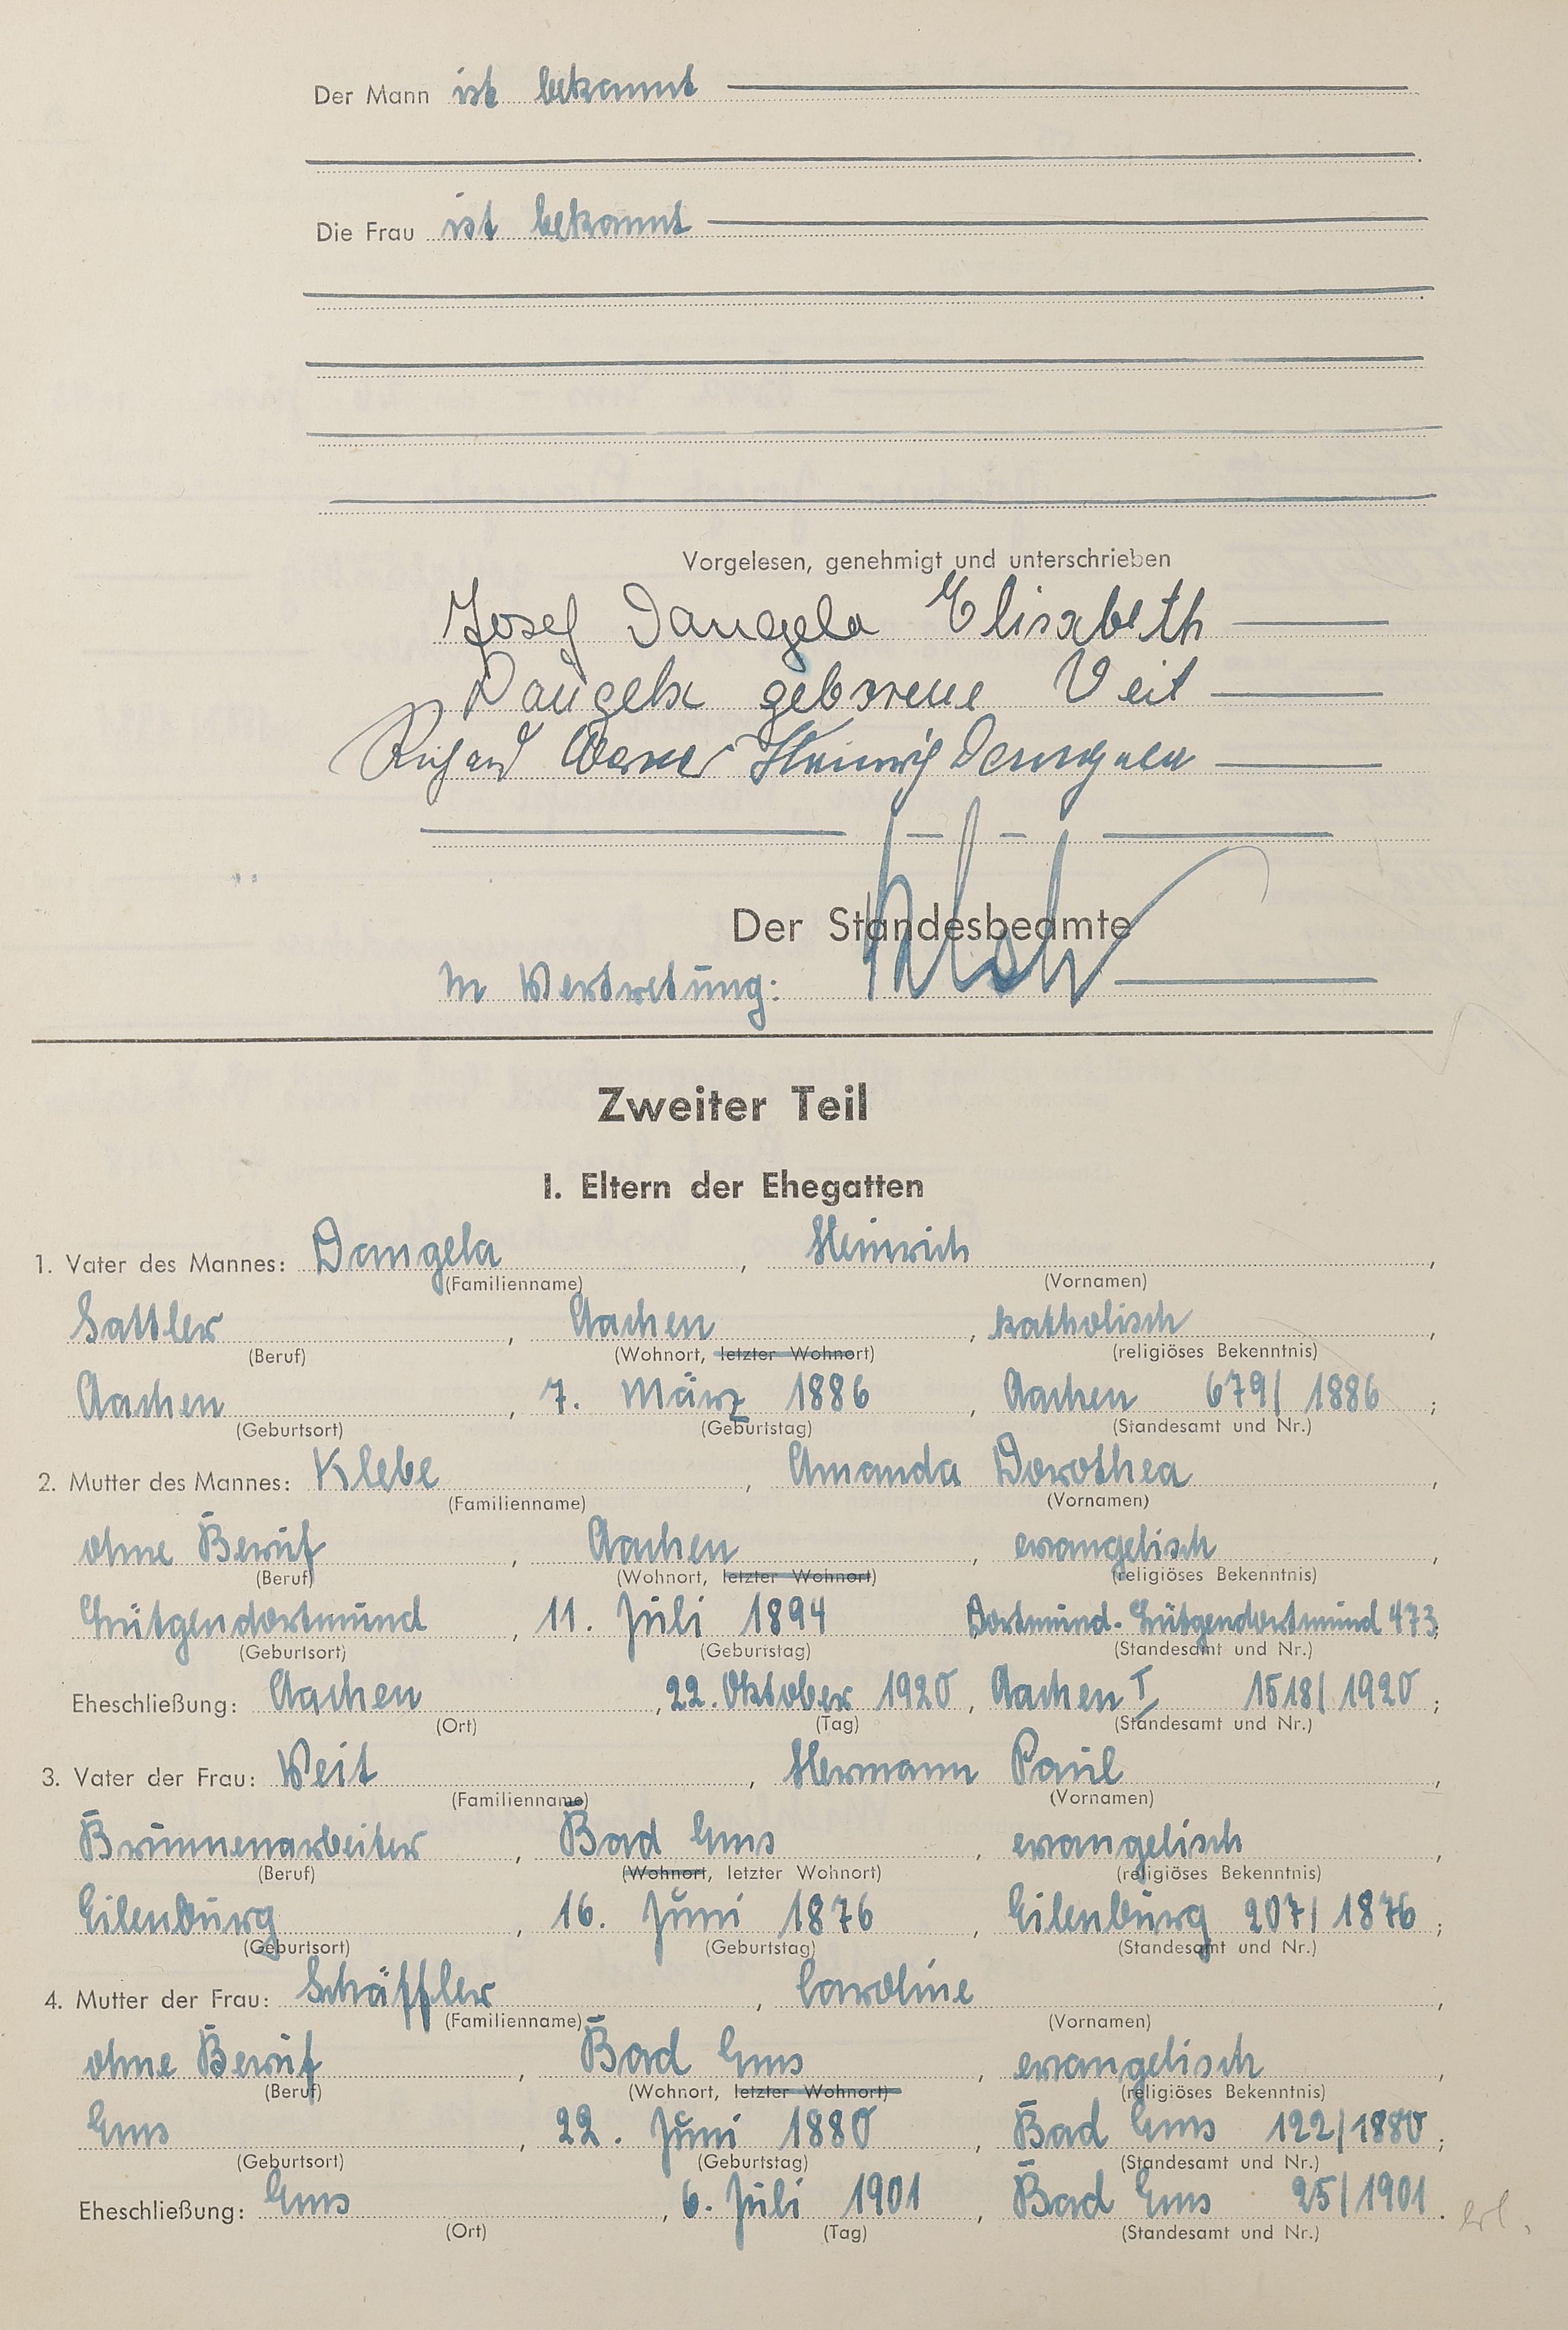 Der Mann ist bekannt
Die Frau ist bekannt
Vorgelesen, genehmigt und unterschrieben
Josef Dangela Elisabeth
Dangela geborene Veit
Richard Werner Heinrich Dangela
Der Standesbeamte
In Vertretung:
Zweiter Teil
I. Eltern der Ehegatten
1. Vater des Mannes: Dangela, Heinrich,
(Familienname) (Vornamen)
Sattler, Aachen, katholisch,
(Beruf) (Wohnort, letzter Wohnort) (religiöses Bekenntnis)
Aachen, 7. März 1886, Aachen 679/1886;
(Geburtsort) (Geburtstag) (Standesamt und Nr.)
2. Mutter des Mannes: Klebe, Amanda Dorothea,
(Familienname) (Vornamen)
ohne Beruf, Aachen, evangelisch,
(Beruf) (Wohnort, letzter Wohnort) (religiöses Bekenntnis)
Lütgendortmund, 11. Juli 1894 Dortmund-Lütgendortmund 473;
(Geburtsort) (Geburtstag) (Standesamt und Nr.)
Eheschließung: Aachen, 22. Oktober 1920, Aachen I 1518/1920;
(Ort) (Tag) (Standesamt und Nr.)
3. Vater der Frau: Veit, Hermann Paul,
(Familienname) (Vornamen)
Brunnenarbeiter, Bad Ems, evangelisch,
(Beruf) (Wohnort, letzter Wohnort) (religiöses Bekenntnis)
Eilenburg, 16. Juni 1876, Eilenburg 207/1876;
(Geburtsort) (Geburtstag) (Standesamt und Nr.)
4. Mutter der Frau: Schäffler, Caroline,
(Familienname) (Vornamen)
ohne Beruf, Bad Ems, evangelisch,
(Beruf) (Wohnort, letzter Wohnort) (religiöses Bekenntnis)
Ems, 22. Juni 1880, Bad Ems 122/1880;
(Geburtsort) (Geburtstag) (Standesamt und Nr.)
Eheschließung: Ems, 6. Juli 1901, Bad Ems 25/1901. erl.
(Ort) (Tag) (Standesamt und Nr.)